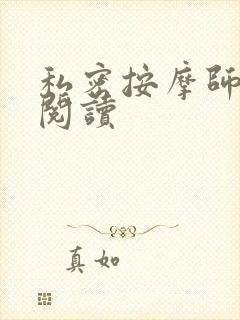 私密按摩師
閱讀
真如